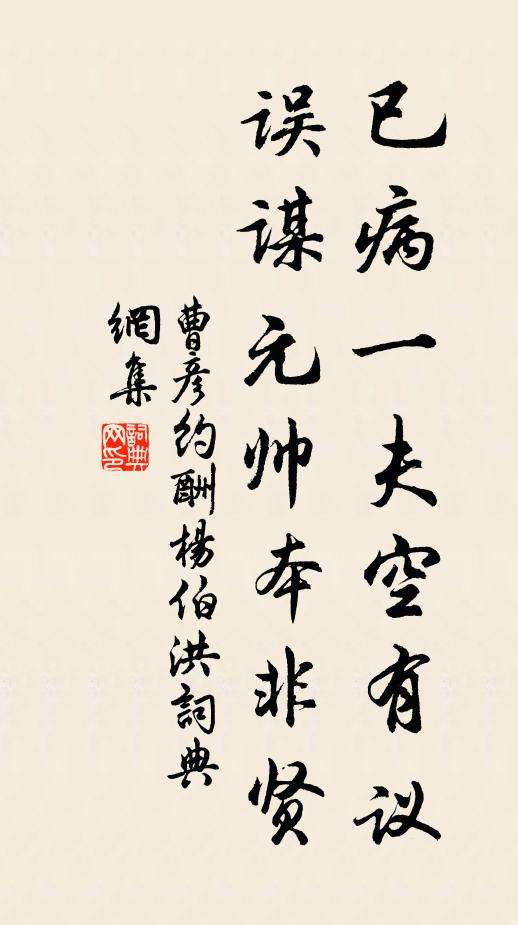 已病一夫空有议
误谋元帅本非贤
曹彦约酬杨伯洪词典
網集
詞典
网印